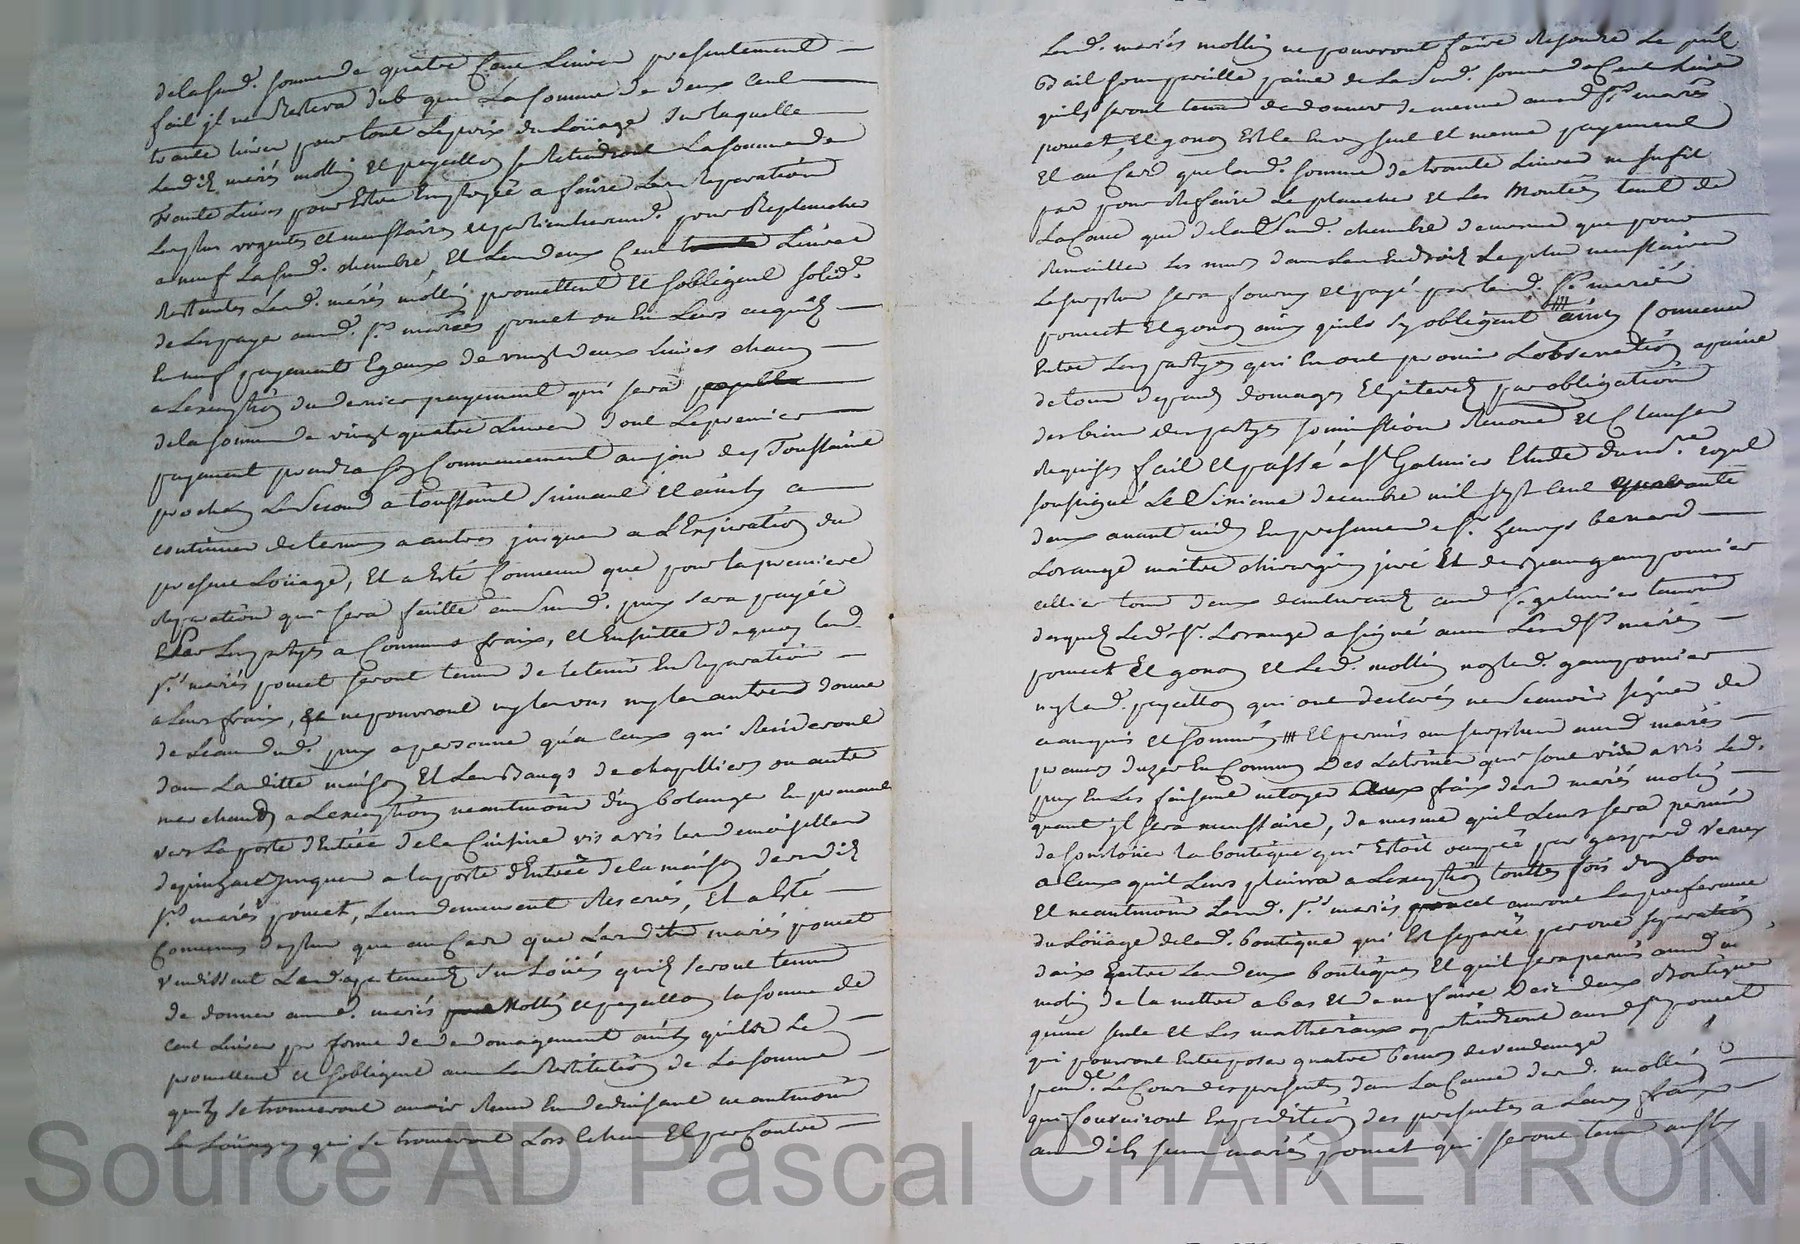 de la susd. somme de quatre Cent Livres presentement
fait jl ne Restera dub que La somme de deux cent
trante livres pour tout Le prix du Loüage sur laquelle
Lesdit mariés mollin et peycellon se Retiendront La somme de
trante Livres pour Estre Employée a faire Les Reparations
Les plus urgentes et necessaires et particulieremt. pour Replancher
a neuf La susd. chambre, Et Les deux Cent Livres
Restantes Lesd. mariés mollin promettent Et sobligent solid.
de Les payer ausd. srs mariés poncet ou En Leurs acquits
En neuf payements Egaux de vingt deux livres chacun
a Lexeption du dernier payement qui sera
de la somme de vingt quatre Livres dont Le premier
payement prendra son Commencement au jour des Toussaint
prochain Le second a toussaint suivant et ainsy a
continuer de termes a autres jusques a L'Expiration du
present Loüage, Et a Esté Convenu que pour la premiere
reparation qui sera faitte au susd. puy sera payée
Par Les partyes a Communs fraix, et Ensuitte de quoy lesd.
srs mariés poncet seront tenus de le tenir En reparation
a Leurs fraix, ne pouvront ny les uns ny les autres donner
de Leau dud. puy a personne qu'a ceux qui Resideront
dans Laditte maison Et Les Bancs de chapelliers ou autre
marchands a Lexeption neantmoins d'un bolanger En prenant
vers La porte d'Entrée de la Cuisine vis a vis les demoiselles
jusques a la porte d'Entrée de la maison desdits
srs mariés poncet, Leur demeurent Reservés, Et a Esté
Convenu de plus que au Cas que Lesdits mariés poncet
vendissent Lesd. apartements sus Loüés quils seront tenus
de donner ausd. mariés Mollin et peycellon la somme de
cent Livres pr forme de dedomagement ainsy quils Le
promettent et sobligent avec La Restitution de La somme
quils se trouveront avoir Reçu En deduisant neantmoins
Les Loüages qui se trouveront Lors Echeus Et par Contre
Lesd. mariés mollin ne pouvront faire Resoudre Le pnt
Bail sous pareille paine de La susd. somme de Cent Livres
quils seront tenus de donner de meme ausd. srs mariés
poncet Et gonon Et Le En un seul et meme payement
Et au Cas que lesd. somme de trante Livres ne sufit
pas pour Refaire Le plancher et Les Montées tant de
La Cave que de la susd. chambre de meme que pour
les murs dans Les Endroits Le plus necessaires
Le surplus sera fourny et payé par lesd. srs mariés
poncet Et gonon ainsy quils sy obligent # ainsy Convenu
Entre Les partyes qui En ont promis Lobservation a paine
de tous depends domages Et jnterets par obligation
des biens des partyes soumission Renonce Et Clauses
Requises fait Et passé a St Galmier Etude du nre royal
soussigné Le Sixieme decembre mil sept cent quarante
deux avant midy En presence de Sr. henry bernard
Lorange maitre chirurgien juré Et de Jean gamponnier
cellier tous deux dud. St galmier temoins
Lesd. Sr. Lorange a signé avec Lesd. srs mariés
poncet Et gonon et Led. mollin non led. gamponnier
ny lad. peycellon qui ont declarés ne scavoir signer de
ce enquis et sommés # Et permis au surplus ausd. mariés
preneurs d'uzer En Commun Des Latrines qui sont vis a vis Led.
puy En Les faisant netoyer aux fraix desd. mariés molin
quant jl sera necessaire, de mesme quil Leurs sera permis
de soustoüer la boutique qui Estoit ocupée par gaspard
a Ceux quil Leurs plairra a Lexeption touttes fois d'un bon
Et neantmoins Lesd. srs mariés poncet auront La preferance
du Loüage de lad. boutique qui Est separée par une separation
d'aix Entre Les deux boutiques Et quil sera permis ausd.
molin de la mettre a bas Et de ne faire Des deux Boutiques
qu'une seule et Les matheriaux apartiendront ausd. srs poncet
qui pouvront Entreposer quatre bennes de vendange
pendt. Le Cours des presentes dans La Cave desd. mollin
qui fourniront Expedition des presentes a Leurs fraix
ausdits srs mariés poncet qui seront tenus aussy
Source AD Pascal CHAREYRON